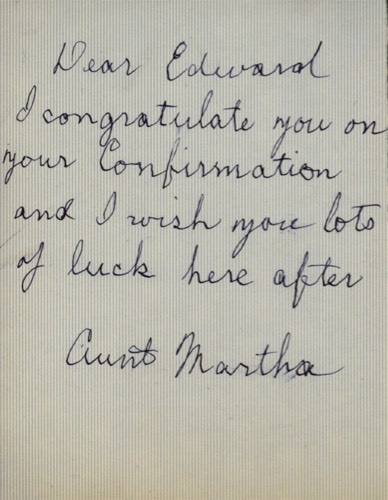 Dear Edward
I congratulate you on
your Confirmation
and I wish you lots
of luck here after
Aunt Martha